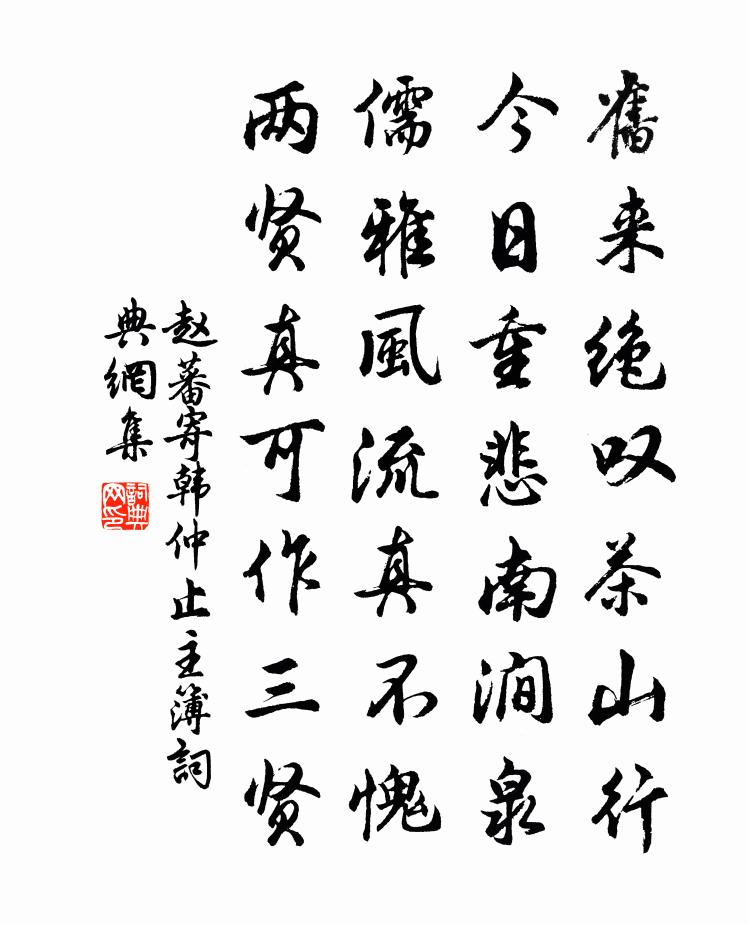 舊来绝叹茶山行
今日重悲南涧泉
儒雅風流真不愧
两贤真可作三贤
赵蕃寄韩仲止主簿詞
典網集
詞典
网印